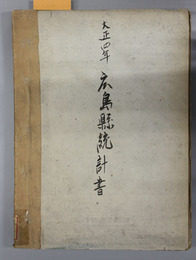 大正四年
広島縣統計書